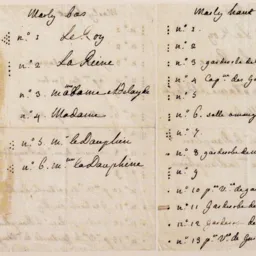 Marly bas
n.° 1 Le Roy
n.° 2 La Reine
n.° 3 madame
n.° 4 Madame
n.° 5. m.r le Dauphin
n.° 6. m.me la Dauphine
Marly haut
n.° 1.
n.° 2
n.° 3 garderobe de
n.° 4 Cap.ne des Ga
n.° 5
n.° 6. salle a mang
n.° 7
n.° 8 garderobe de
n.° 9
n.° 10 p.er V. de ga
n.° 11 Garderobe de
n.° 12 garderobe de
n.° 13 p.er V. de Ga